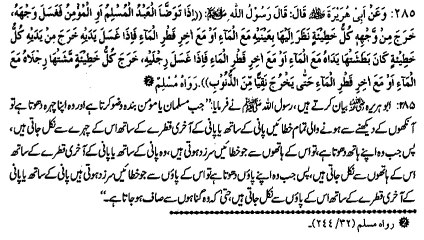 ٢٨٥: وَعَنْ أَبِي هُرَيْرَةَ ﷺ قَالَ: قَالَ رَسُوْلُ اللهِ ﷺ: ((إِذَا تَوَضَّأَ الْعَبْدُ الْمُسْلِمُ أَوِ الْمُؤْمِنُ فَغَسَلَ وَجْهَهُ،
خَرَجَ مِنْ وَّجْهِهٖ كُلُّ خَطِيْئَةٍ نَظَرَ إِلَيْهَا بِعَيْنَيْهِ مَعَ الْمَاءِ أَوْ مَعَ اٰخِرِ قَطْرِ الْمَاءِ فَإِذَا غَسَلَ يَدَيْهِ خَرَجَ مِنْ يَدَيْهِ كُلُّ
خَطِيْئَةٍ كَانَ بَطَشَتْهَا يَدَاهُ مَعَ الْمَاءِ أَوْ مَعَ اٰخِرِ قَطْرِ الْمَاءِ، فَإِذَا غَسَلَ رِجْلَيْهِ، خَرَجَ كُلُّ خَطِيْئَةٍ مَّشَتْهَا رِجْلَاهُ مَعَ
الْمَاءِ أَوْ مَعَ اٰخِرِ قَطْرِ الْمَاءِ حَتّٰى يَخْرُجَ نَقِيًّا مِّنَ الذُّنُوْبِ)). رَوَاهُ مُسْلِمٌ
٢٨٥: ابوہریرہ بیان کرتے ہیں، رسول اللہ ﷺ نے فرمایا: ”جب مسلمان یا مؤمن بندہ وضو کرتا ہے اور وہ اپنا چہرہ دھوتا ہے تو
آنکھوں کے دیکھنے سے ہونے والی تمام خطائیں پانی کے ساتھ یا پانی کے آخری قطرے کے ساتھ اس کے چہرے سے نکل جاتی ہیں،
پس جب وہ اپنے ہاتھ دھوتا ہے، تو اس کے ہاتھوں سے جو خطائیں سرزد ہوتی ہیں، وہ پانی کے ساتھ یا پانی کے آخری قطرے کے ساتھ
اس کے ہاتھوں سے نکل جاتی ہیں، پس جب وہ اپنے پاؤں دھوتا ہے تو اس کے پاؤں سے جو خطائیں سرزد ہوتی ہیں پانی یا پانی
کے آخری قطرے کے ساتھ اس کے پاؤں سے نکل جاتی ہیں، حتیٰ کہ وہ گناہوں سے صاف ہو جاتا ہے۔“
رواہ مسلم (٣٢/ ٢٤٤)۔